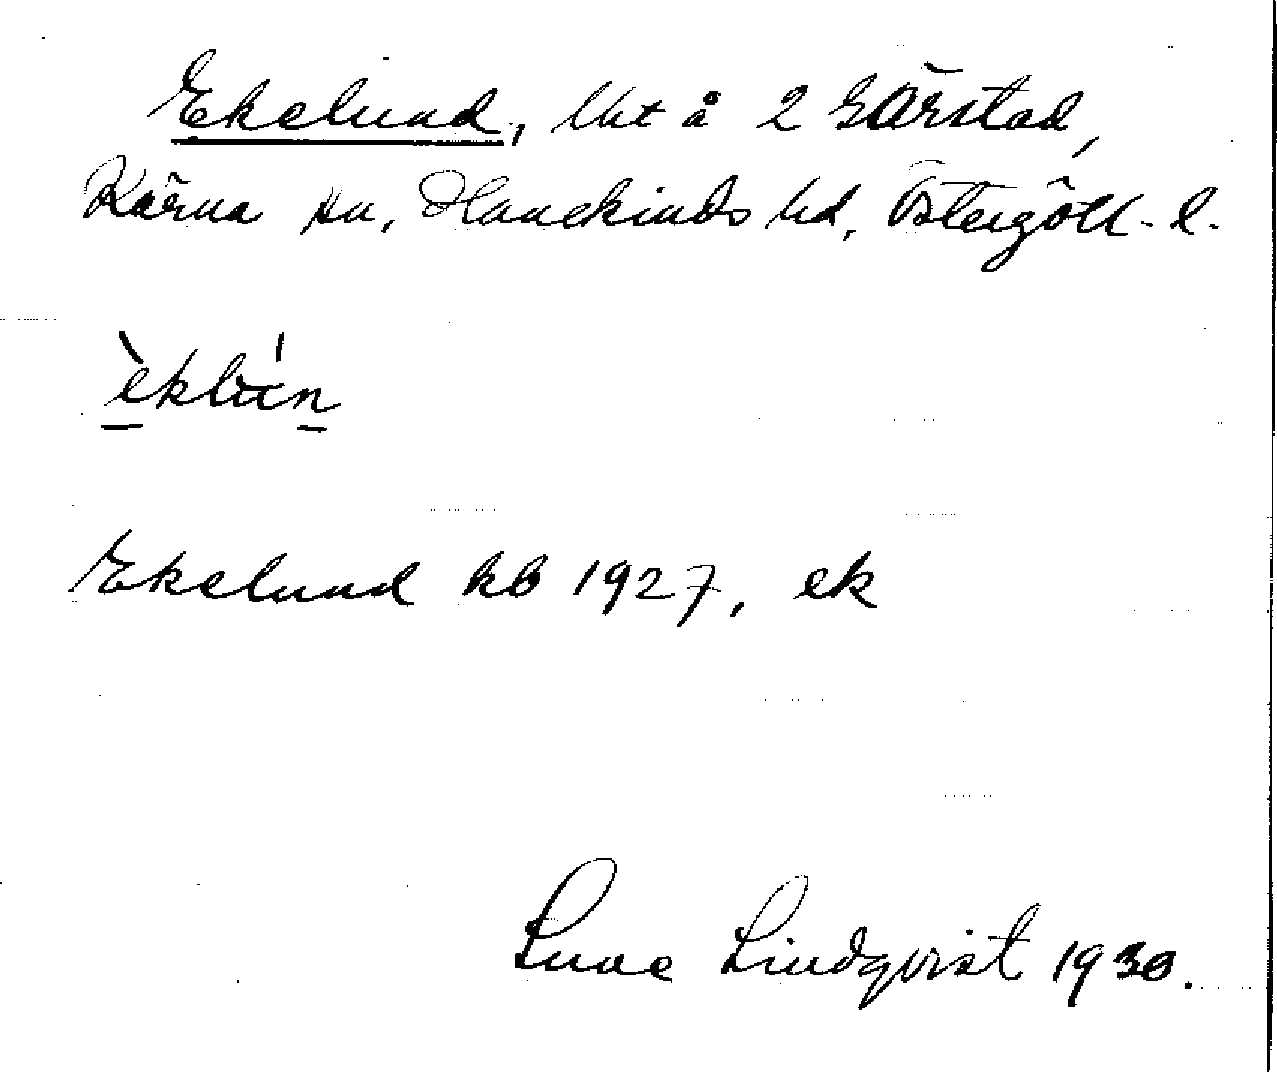 Ekelund, lht å 2 Gärstad,
Kärna sn, Hanekinds hd, Östergötl. l.
èklún
Ekelund kb 1927, ek
Sune Lindqvist 1930.